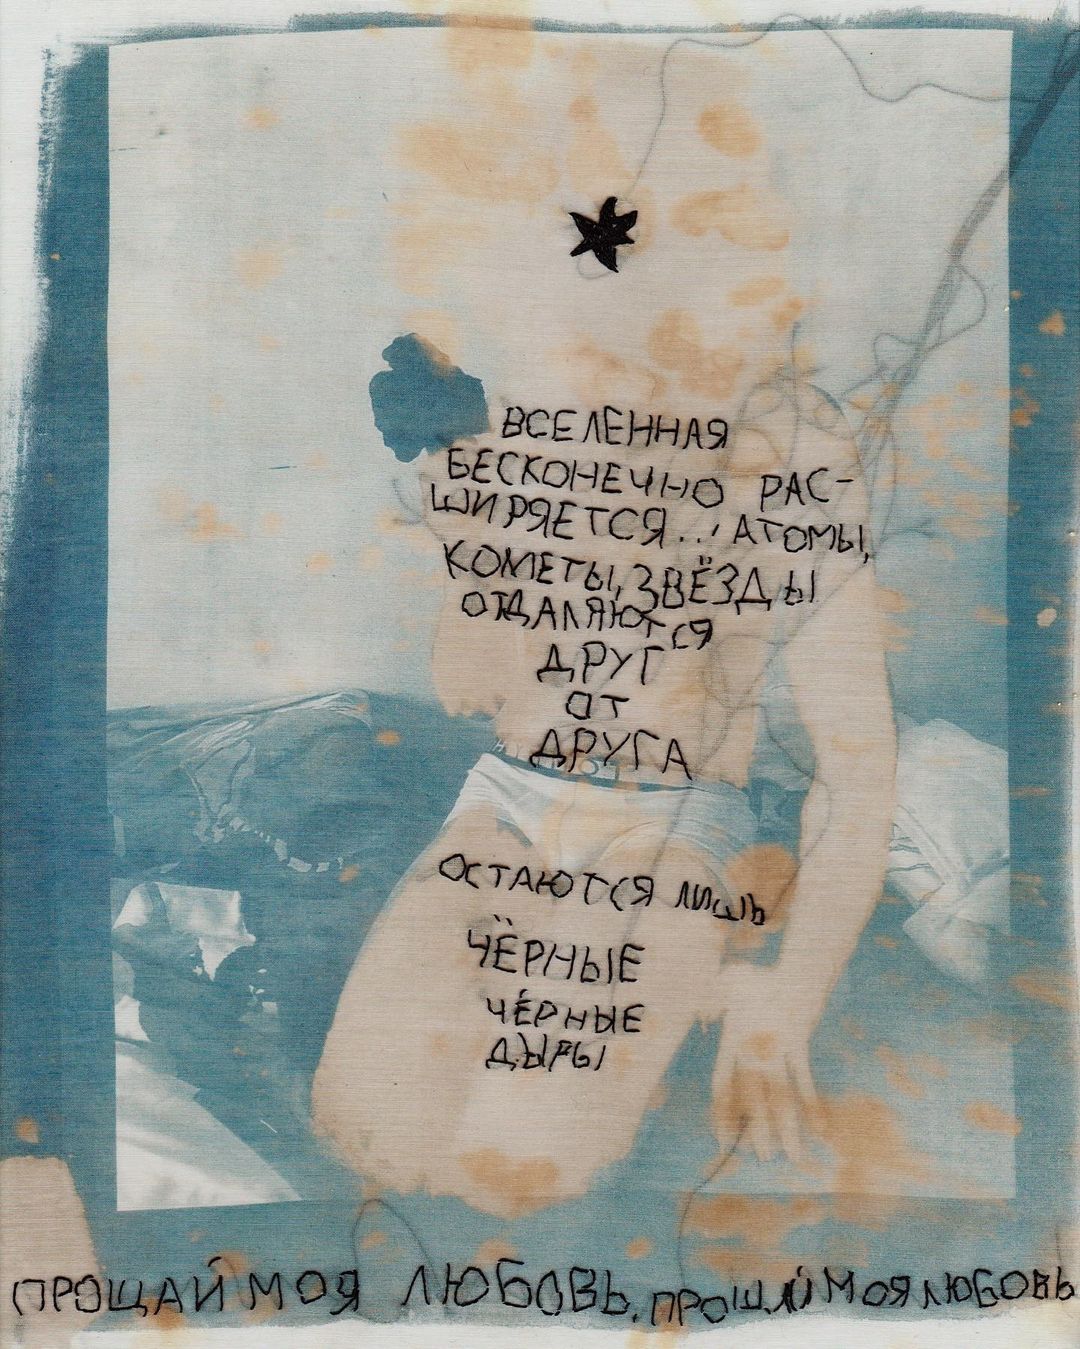 ВСЕЛЕННАЯ
БЕСКОНЕЧНО РАС-
ШИРЯЕТСЯ... АТОМЫ,
КОМЕТЫ, ЗВЁЗДЫ
ОТДАЛЯЮТСЯ
ДРУГ
ОТ
ДРУГА
ОСТАЮТСЯ ЛИШЬ
ЧЁРНЫЕ
ЧЁРНЫЕ
ДЫРЫ
ПРОЩАЙ МОЯ ЛЮБОВЬ, ПРОЩАЙ МОЯ ЛЮБОВЬ